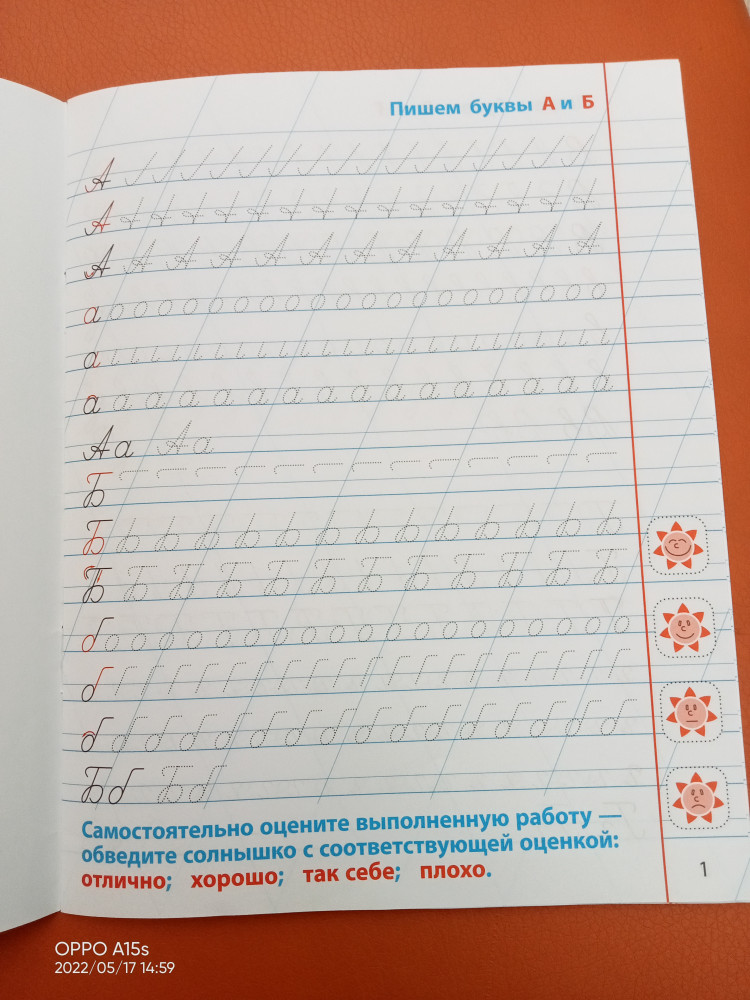 Пишем буквы А и Б
А
А А А А А А А А А А А А
а
а а а а а а а а а а а а а а а а
Аа Аа
Б
Б Б Б Б Б Б Б Б Б Б Б Б
б
б б б б б б б б б б б б б б б б
Бб Бб
Самостоятельно оцените выполненную работу —
обведите солнышко с соответствующей оценкой:
отлично; хорошо; так себе; плохо.
1
OPPO A15s
2022/05/17 14:59